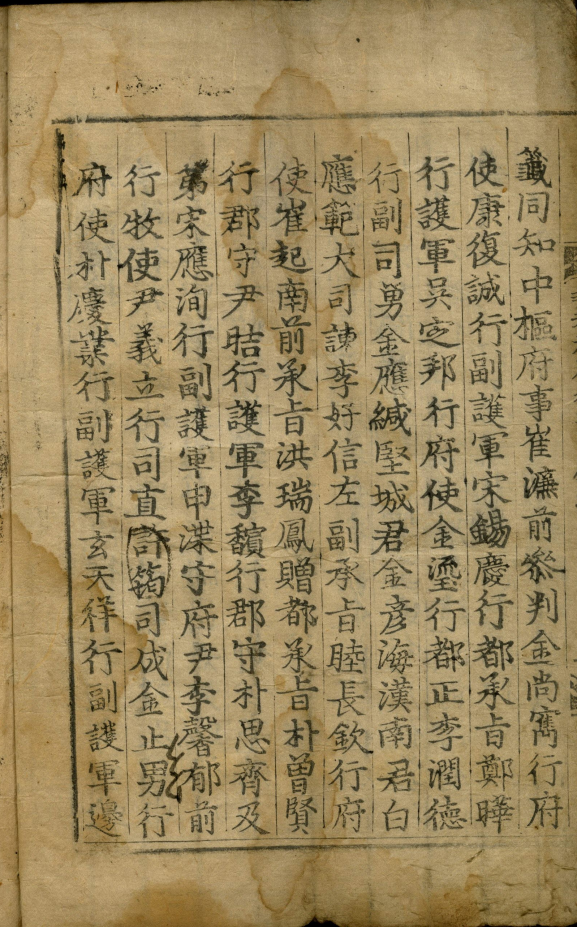 籤同知中樞府事崔濂前叅判金尙寯行府
使康復誠行副護軍宋錫慶行都承旨鄭曄
行護軍吳定邦行府使金瑬行都正李潤德
行副司勇金應緘堅城君金彦海漢南君白
應範大司諫李好信左副承旨睦長欽行府
使崔起南前承旨洪瑞鳳贈都承旨朴曾賢
行郡守尹晧行護軍李馩行郡守朴思齊及
第宋應洵行副護軍申渫守府尹李馨郁前
行牧使尹義立行司直許筠司成金止男行
府使朴慶業行副護軍玄天祥行副護軍邊